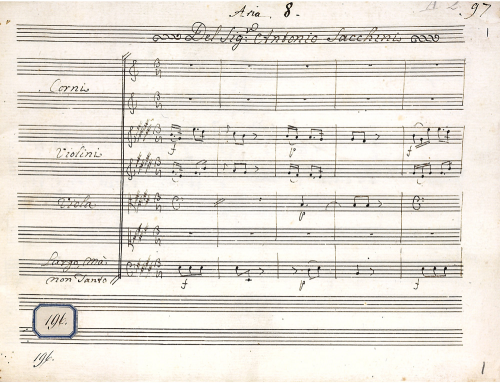 Aria. 8.
A 2. 97
1
Del Sig.re Antonio Sacchini
Corni
Violini
Viola
Largo, mà
non Tanto
f
p
f
f
p
f
196.
196.
1